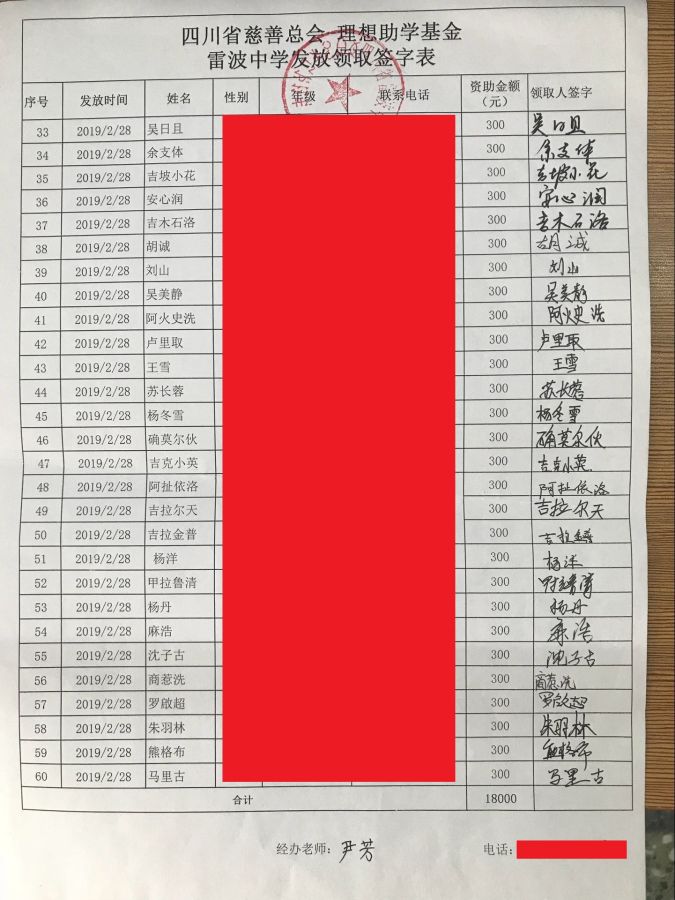 四川省慈善总会 理想助学基金
雷波中学发放领取签字表
序号 发放时间 姓名 性别 年级 联系电话 资助金额（元） 领取人签字
33 2019/2/28 吴日且 300 吴日且
34 2019/2/28 余支体 300 余支体
35 2019/2/28 吉坡小花 300 吉坡小花
36 2019/2/28 安心润 300 安心润
37 2019/2/28 吉木石洛 300 吉木石洛
38 2019/2/28 胡诚 300 胡诚
39 2019/2/28 刘山 300 刘山
40 2019/2/28 吴美静 300 吴美静
41 2019/2/28 阿火史洗 300 阿火史洗
42 2019/2/28 卢里取 300 卢里取
43 2019/2/28 王雪 300 王雪
44 2019/2/28 苏长蓉 300 苏长蓉
45 2019/2/28 杨冬雪 300 杨冬雪
46 2019/2/28 确莫尔伙 300 确莫尔伙
47 2019/2/28 吉克小英 300 吉克小英
48 2019/2/28 阿扯依洛 300 阿扯依洛
49 2019/2/28 吉拉尔天 300 吉拉尔天
50 2019/2/28 吉拉金普 300 吉拉金普
51 2019/2/28 杨洋 300 杨洋
52 2019/2/28 甲拉鲁清 300 甲拉鲁清
53 2019/2/28 杨丹 300 杨丹
54 2019/2/28 麻浩 300 麻浩
55 2019/2/28 沈子古 300 沈子古
56 2019/2/28 商惹洗 300 商惹洗
57 2019/2/28 罗啟超 300 罗啟超
58 2019/2/28 朱羽林 300 朱羽林
59 2019/2/28 熊格布 300 熊格布
60 2019/2/28 马里古 300 马里古
合计 18000
经办老师：尹芳 电话：